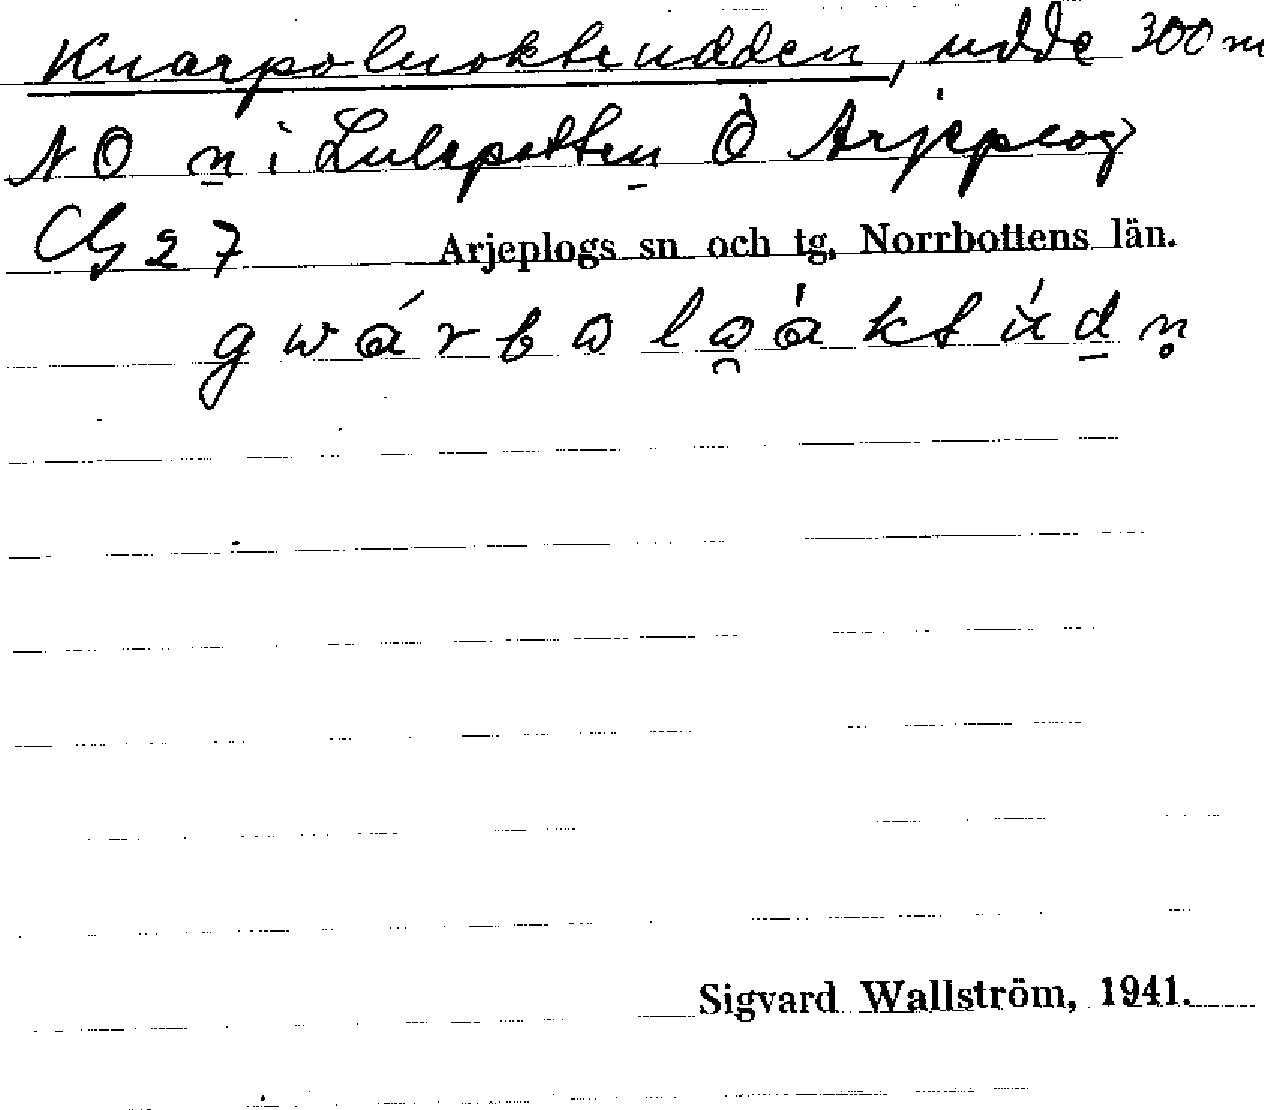 Kuarpoluokteudden, udde 300 m
NO n i Lulepotten Ö Arjeplog
Cg 27 Arjeplogs sn och tg, Norrbottens län.
Sigvard Wallström, 1941.